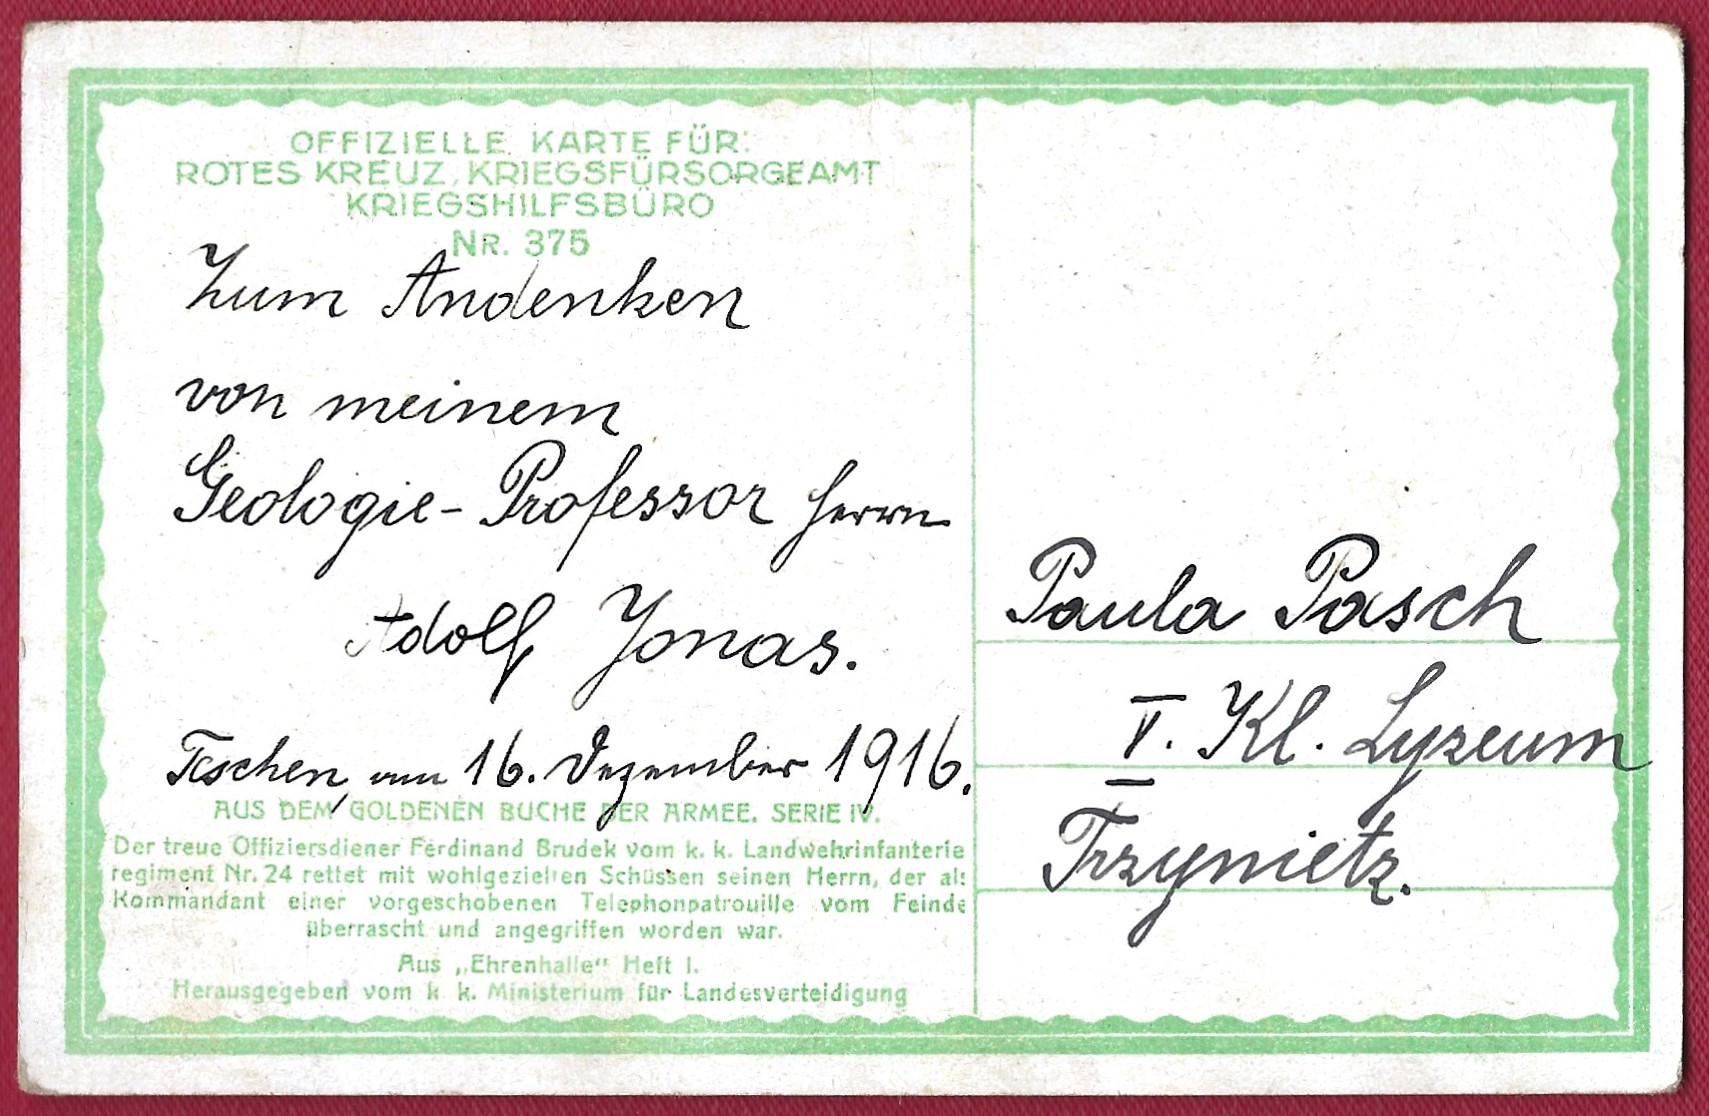 OFFIZIELLE KARTE FÜR:
ROTES KREUZ, KRIEGSFÜRSORGEAMT
KRIEGSHILFSBÜRO
NR. 375
Zum Andenken
von meinem
Geologie-Professor Herrn
Adolf Jonas.
Teschen, am 16. Dezember 1916.
AUS DEM GOLDENEN BUCHE DER ARMEE. SERIE IV.
Der treue Offiziersdiener Ferdinand Brudek vom k. k. Landwehrinfanterie
regiment Nr. 24 rettet mit wohlgezielten Schüssen seinen Herrn, der als
Kommandant einer vorgeschobenen Telephonpatrouille vom Feinde
überrascht und angegriffen worden war.
Aus „Ehrenhalle" Heft I.
Herausgegeben vom k k. Ministerium für Landesverteidigung
Paula Pasch
V. Kl. Lyzeum
Trzynietz.